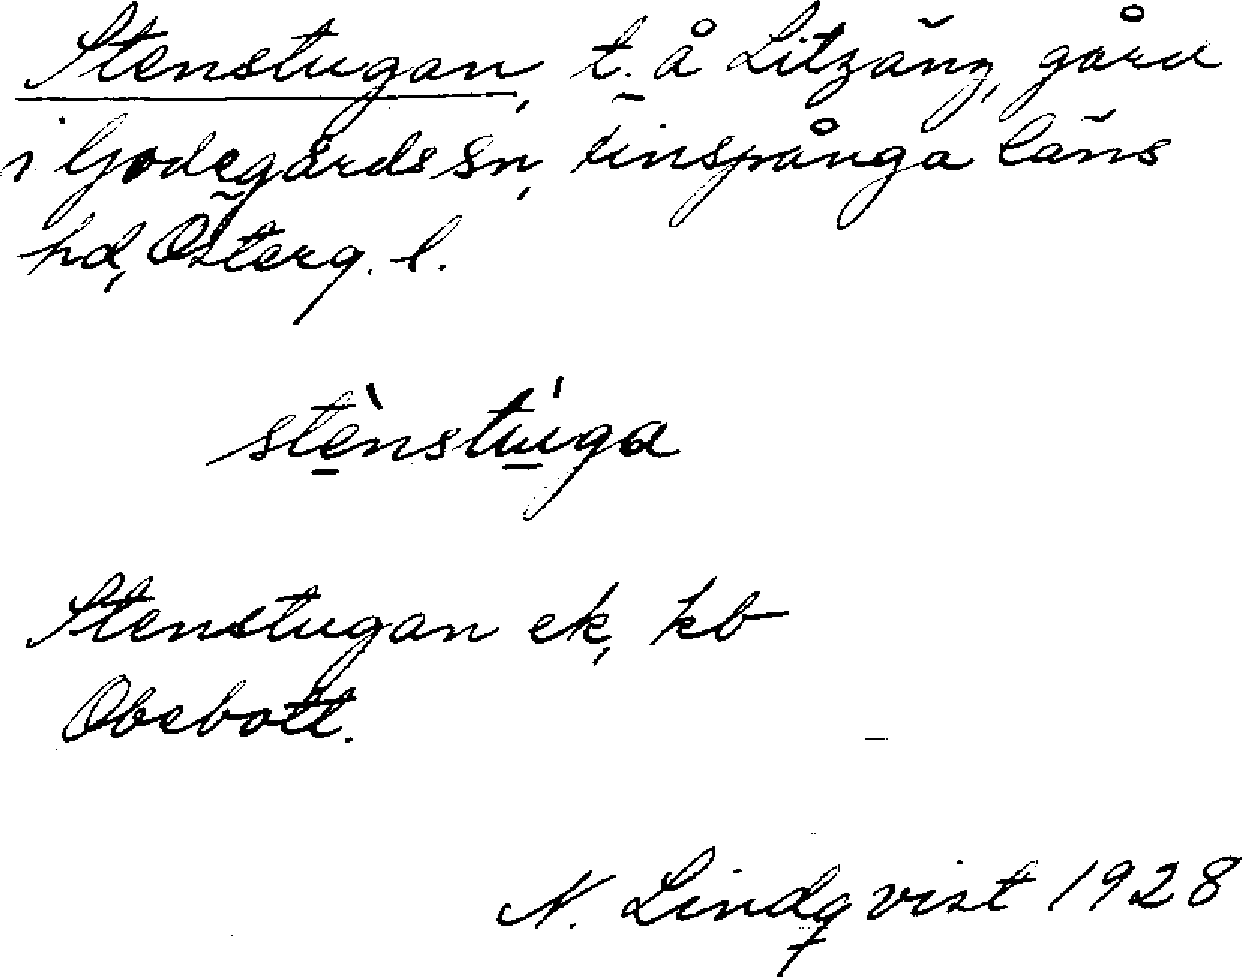 Stenstugan, t. å Litzäng, gård
i Godegårds sn, Finspånga läns
hd, Österg. l.
stènstúga
Stenstugan ek, kb
Obebott.
N. Lindqvist 1928